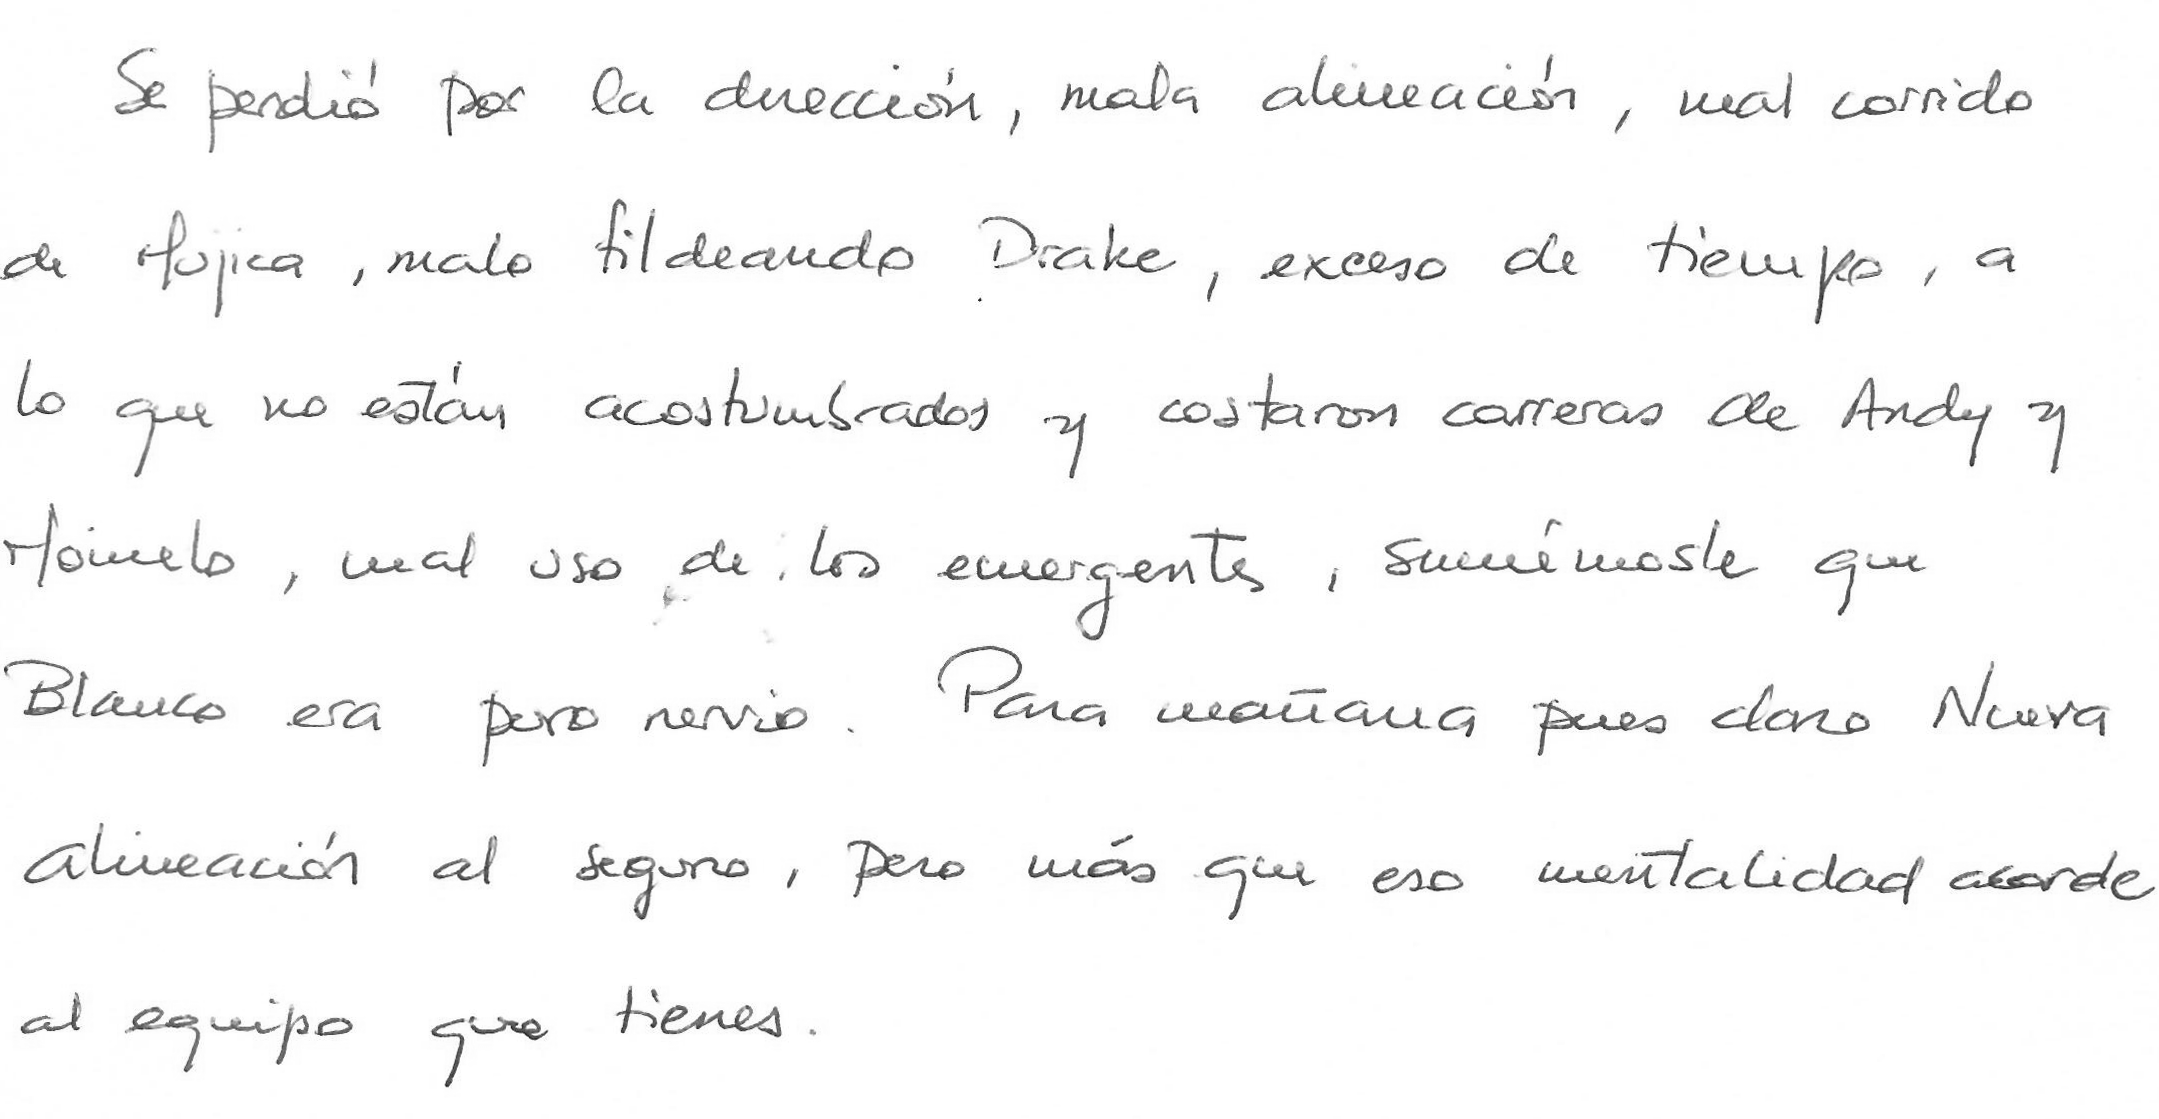 Se perdió por la dirección, mala alineación, mal corrido
de Mojica, malo fildeando Drake, exceso de tiempo, a
lo que no están acostumbrados y costaron carreras de Andy y
Moinelo, mal uso de los emergentes, sumémosle que
Blanco era puro nervio. Para mañana pues claro Nueva
alineación al seguro, pero más que eso mentalidad acorde
al equipo que tienes.